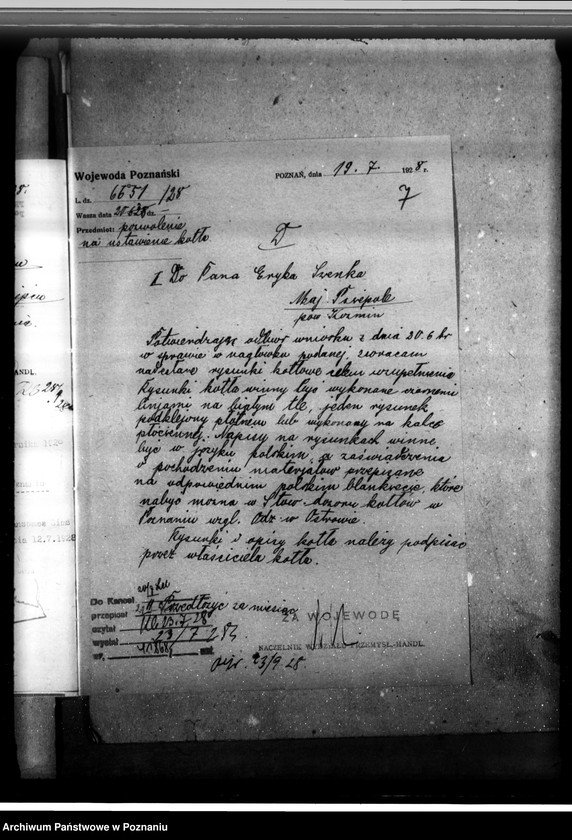 Wojewoda Poznański
POZNAŃ, dnia 19.7 1928 r.
L. dz. 6651/28
7
Wasza data 20.6.28 dz. —
Przedmiot: pozwolenie
na ustawienie kotła
I Do Pana Eryka Szenka
Maj. Psiepole
pow. Koźmin
Potwierdzając odbiór wniosku z dnia 20.6 br
w sprawie w nagłówku podanej, zwracam
nadesłane rysunki kotłowe celem uzupełnienia
Rysunki kotła winny być wykonane czarnemi
linjami na białym tle, jeden rysunek
podklejony płótnem lub wykonany na kalce
płóciennej. Napisy na rysunkach winne
być w języku polskim, a zaświadczenia
o pochodzeniu materjałów przepisane
na odpowiednim polskim blankiecie, które
nabyć można w Stow. dozoru kotłów w
Poznaniu wzgl. Odz. w Ostrowie.
Rysunki i opisy kotła należy podpisać
przez właściciela kotła.
Do Kancel.
przepisał
czytał
wysłał 23/7 28
Przedłożyć za miesiąc
ZA WOJEWODĘ
NACZELNIK WYDZIAŁU PRZEMYSŁ.-HANDL.
23/9 28.
ANDL.
12.7.1928
Archiwum Państwowe w Poznaniu